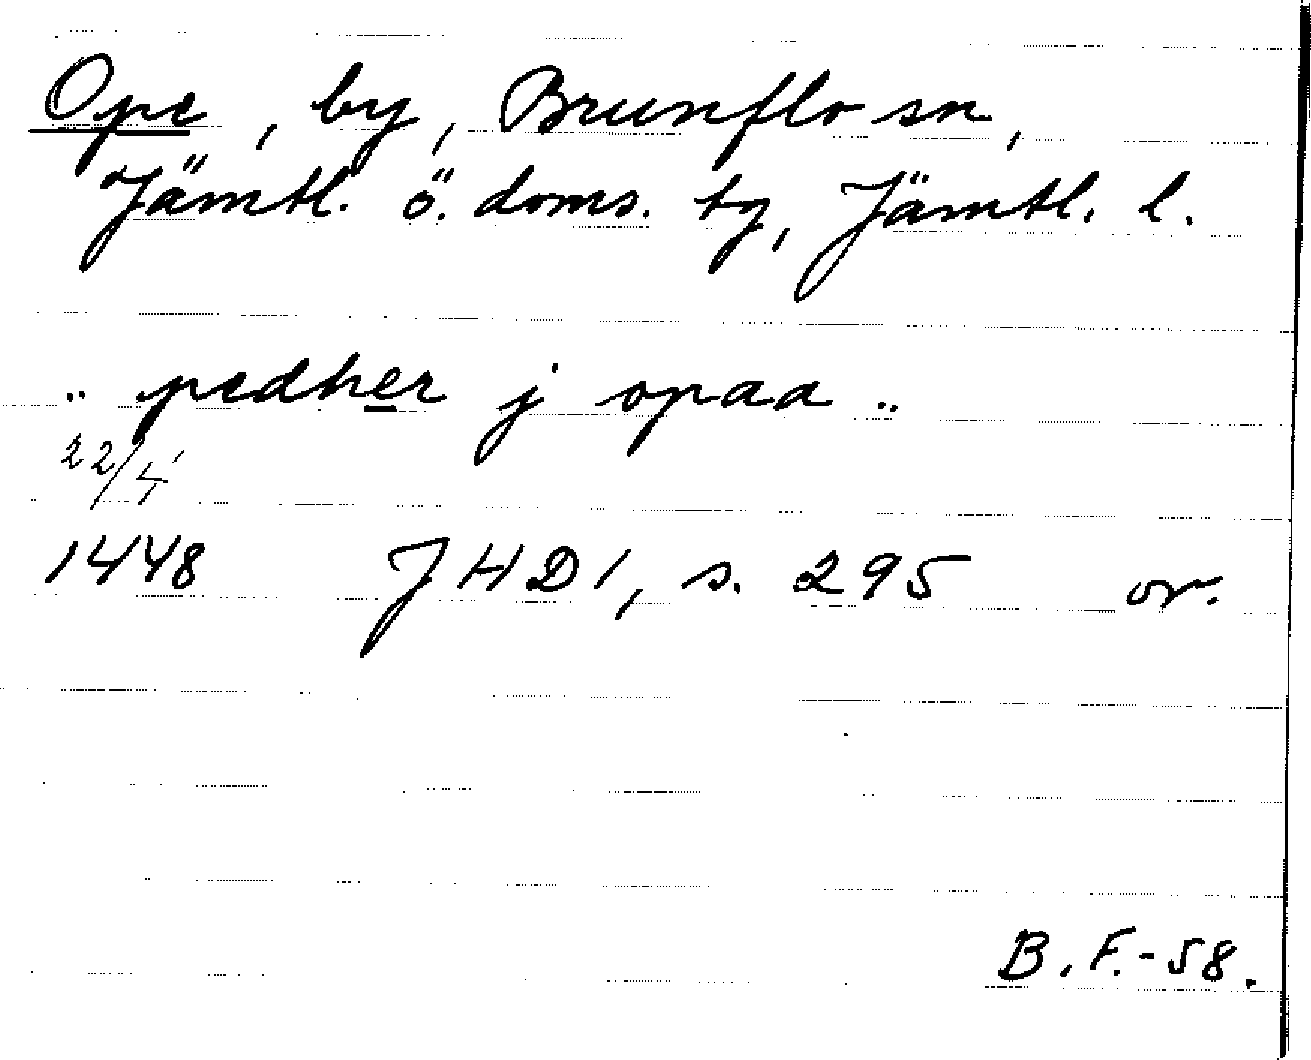 Ope, by, Brunflo sn,
Jämtl. ö. doms. tg, Jämtl. l.
.. pedher j opaa ..
22/4
1448 JHD 1, s. 295 or.
B.F.-58.